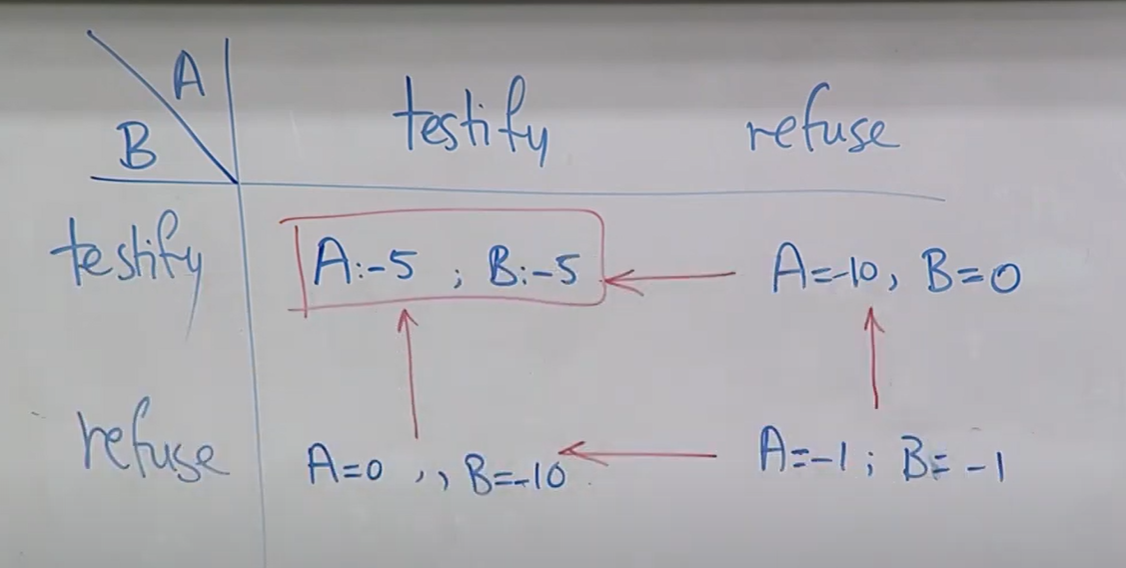 A
B
testify refuse
testify A:-5 ; B:-5 A=-10, B=0
refuse A=0 ,, B=-10 A=-1; B=-1